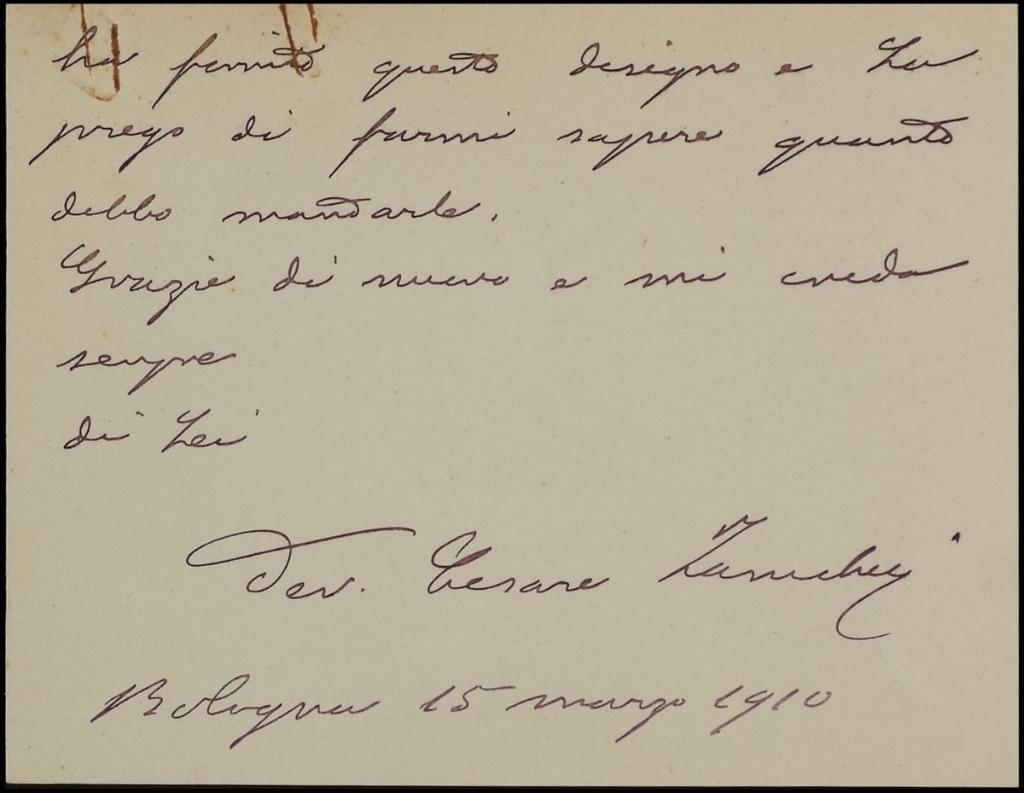 ha fornito questo disegno e La
prego di farmi sapere quanto
debbo mandarle.
Grazie di nuovo e mi creda
sempre
di Lei
Dev. Cesare Zanichelli
Bologna 15 marzo 1910